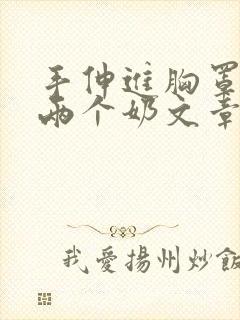 手伸进胸罩
两个奶文章
我爱揚州炒飯